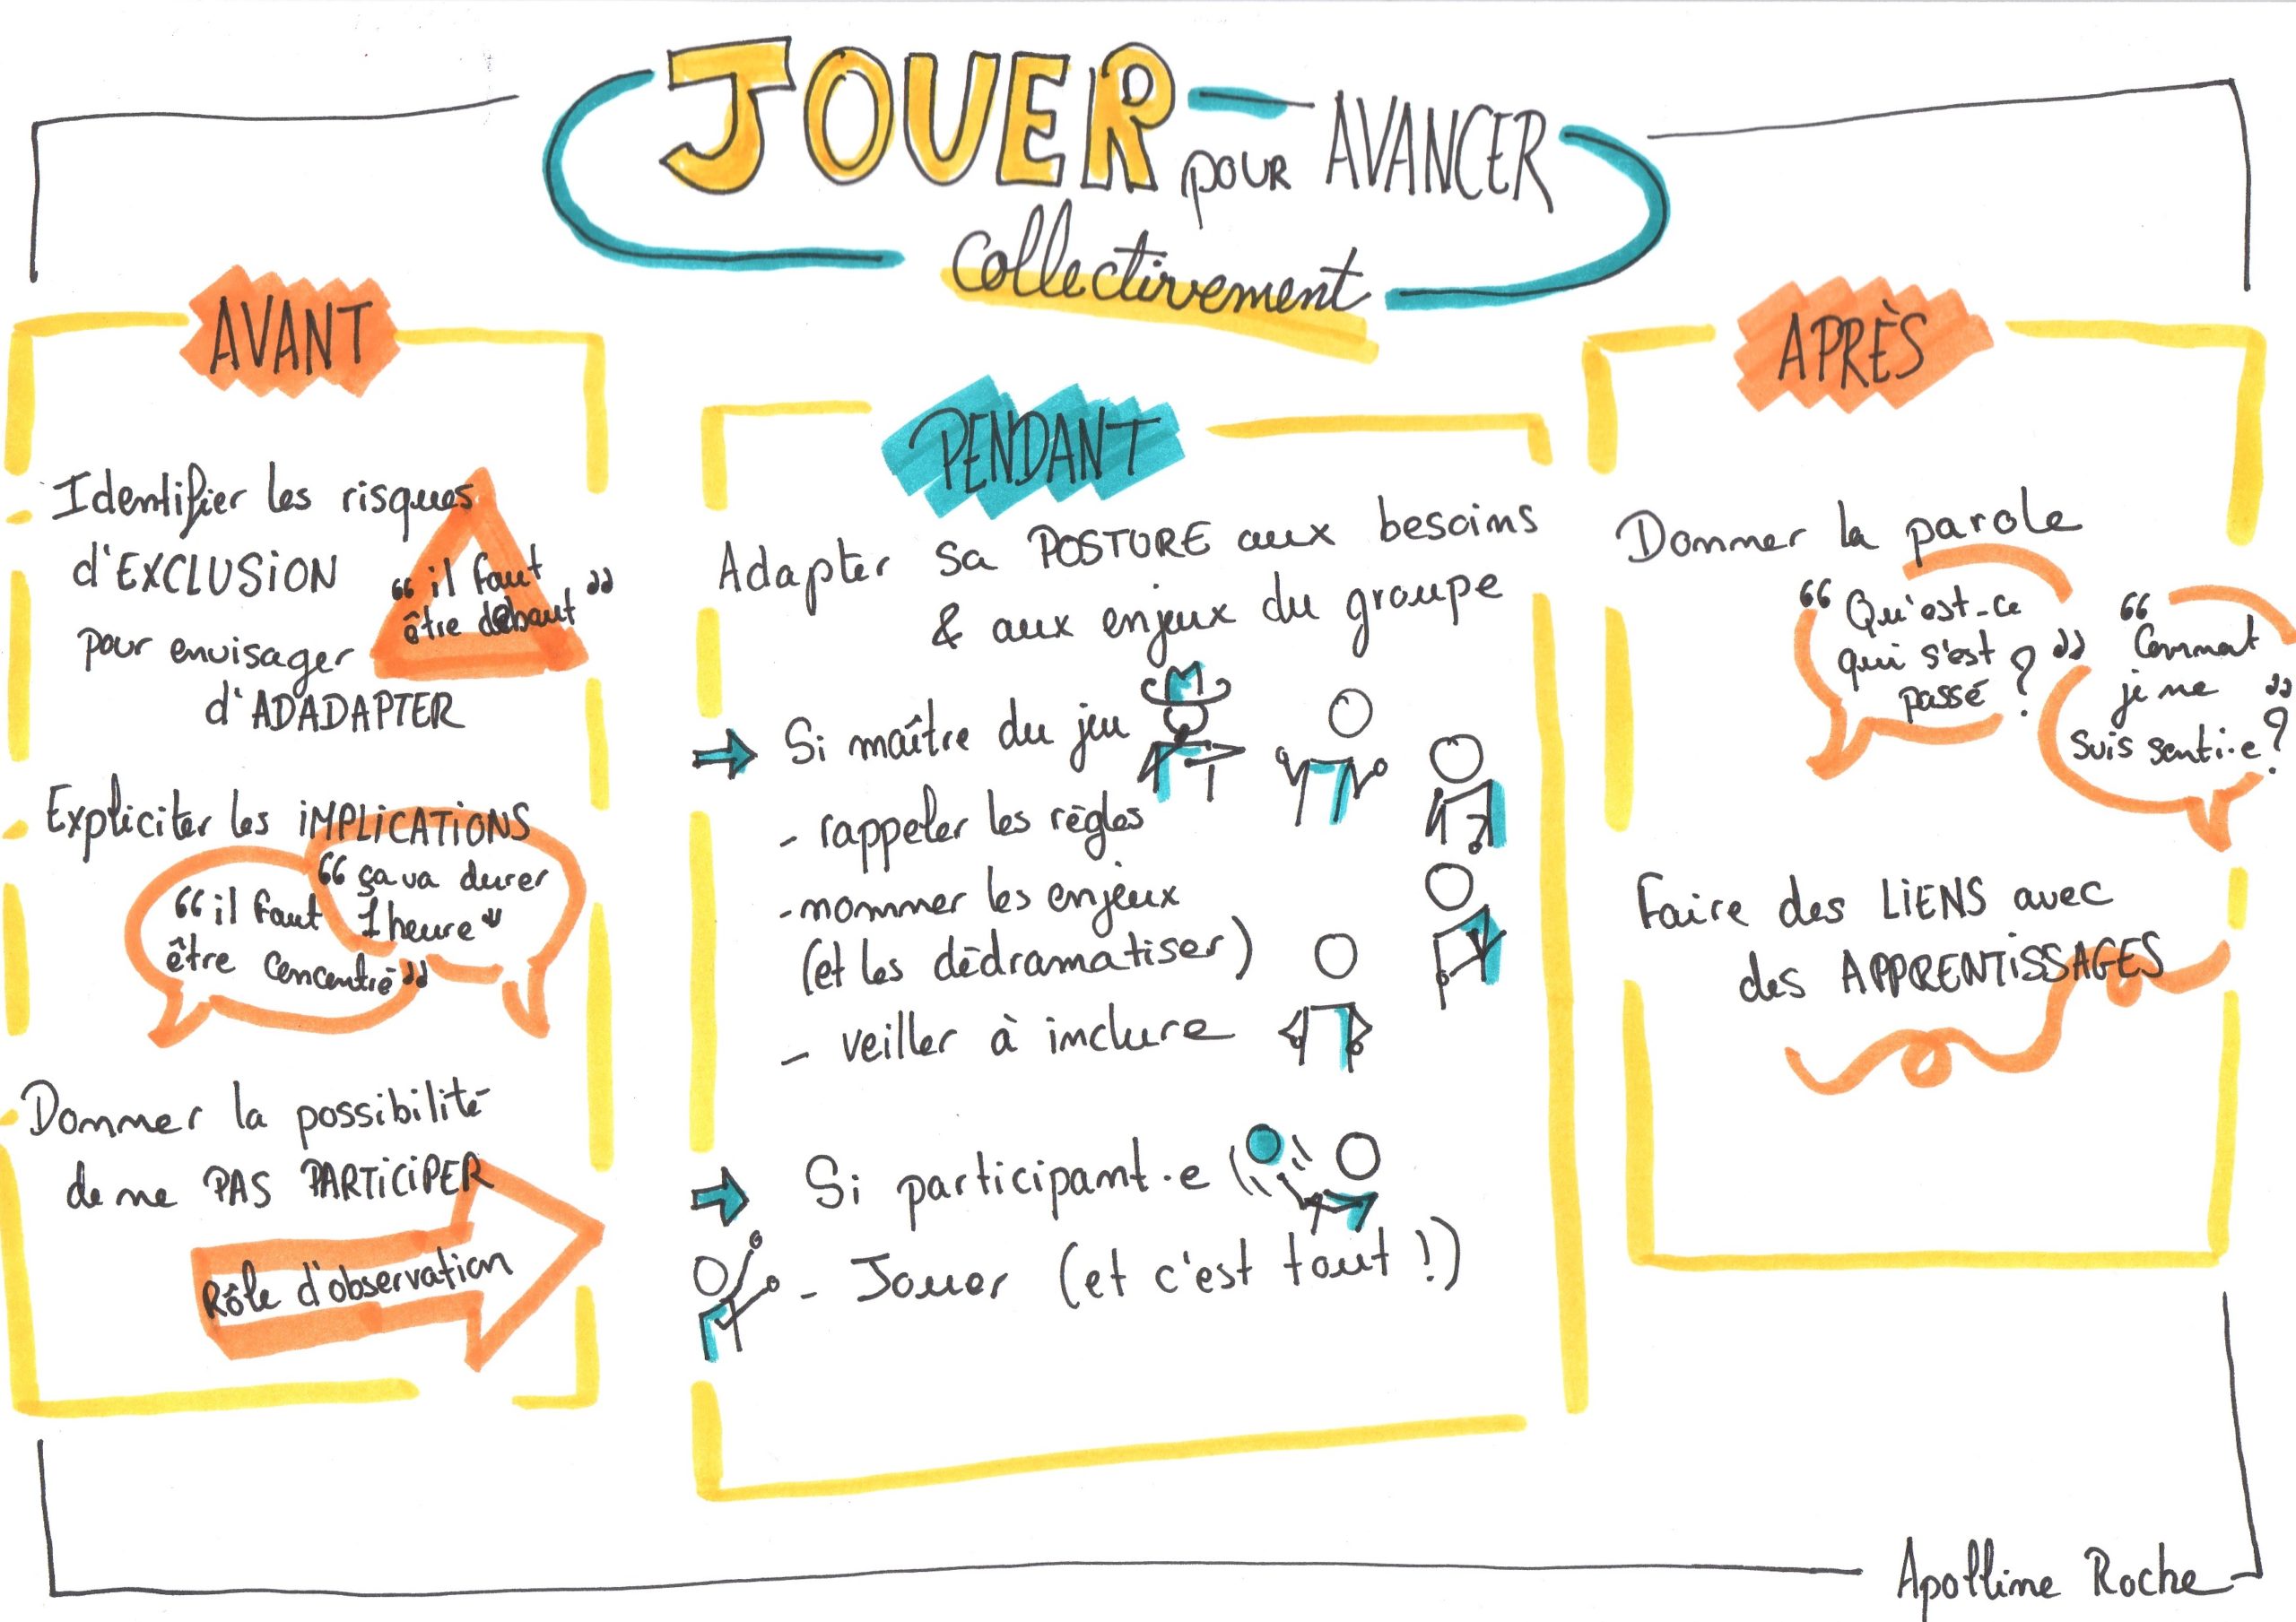 JOUER pour AVANCER
collectivement
AVANT
Identifier les risques
d'EXCLUSION
pour envisager
d'ADADAPTER
"il faut
être debout"
Expliciter les iMPLiCATiONS
"il faut
être concentré"
"ça va durer
1 heure"
Donner la possibilité
de ne PAS PARTiCiPER
Rôle d'observation
PENDANT
Adapter sa POSTURE aux besoins
& aux enjeux du groupe
→ Si maître du jeu
- rappeler les règles
- nommer les enjeux
(et les dédramatiser)
- veiller à inclure
→ Si participant·e
- Jouer (et c'est tout !)
APRÈS
Donner la parole
"Qu'est-ce
qui s'est
passé ?"
"Comment
je me
suis senti·e ?"
Faire des LiENS avec
des APPRENTiSSAGES
Apolline Roche